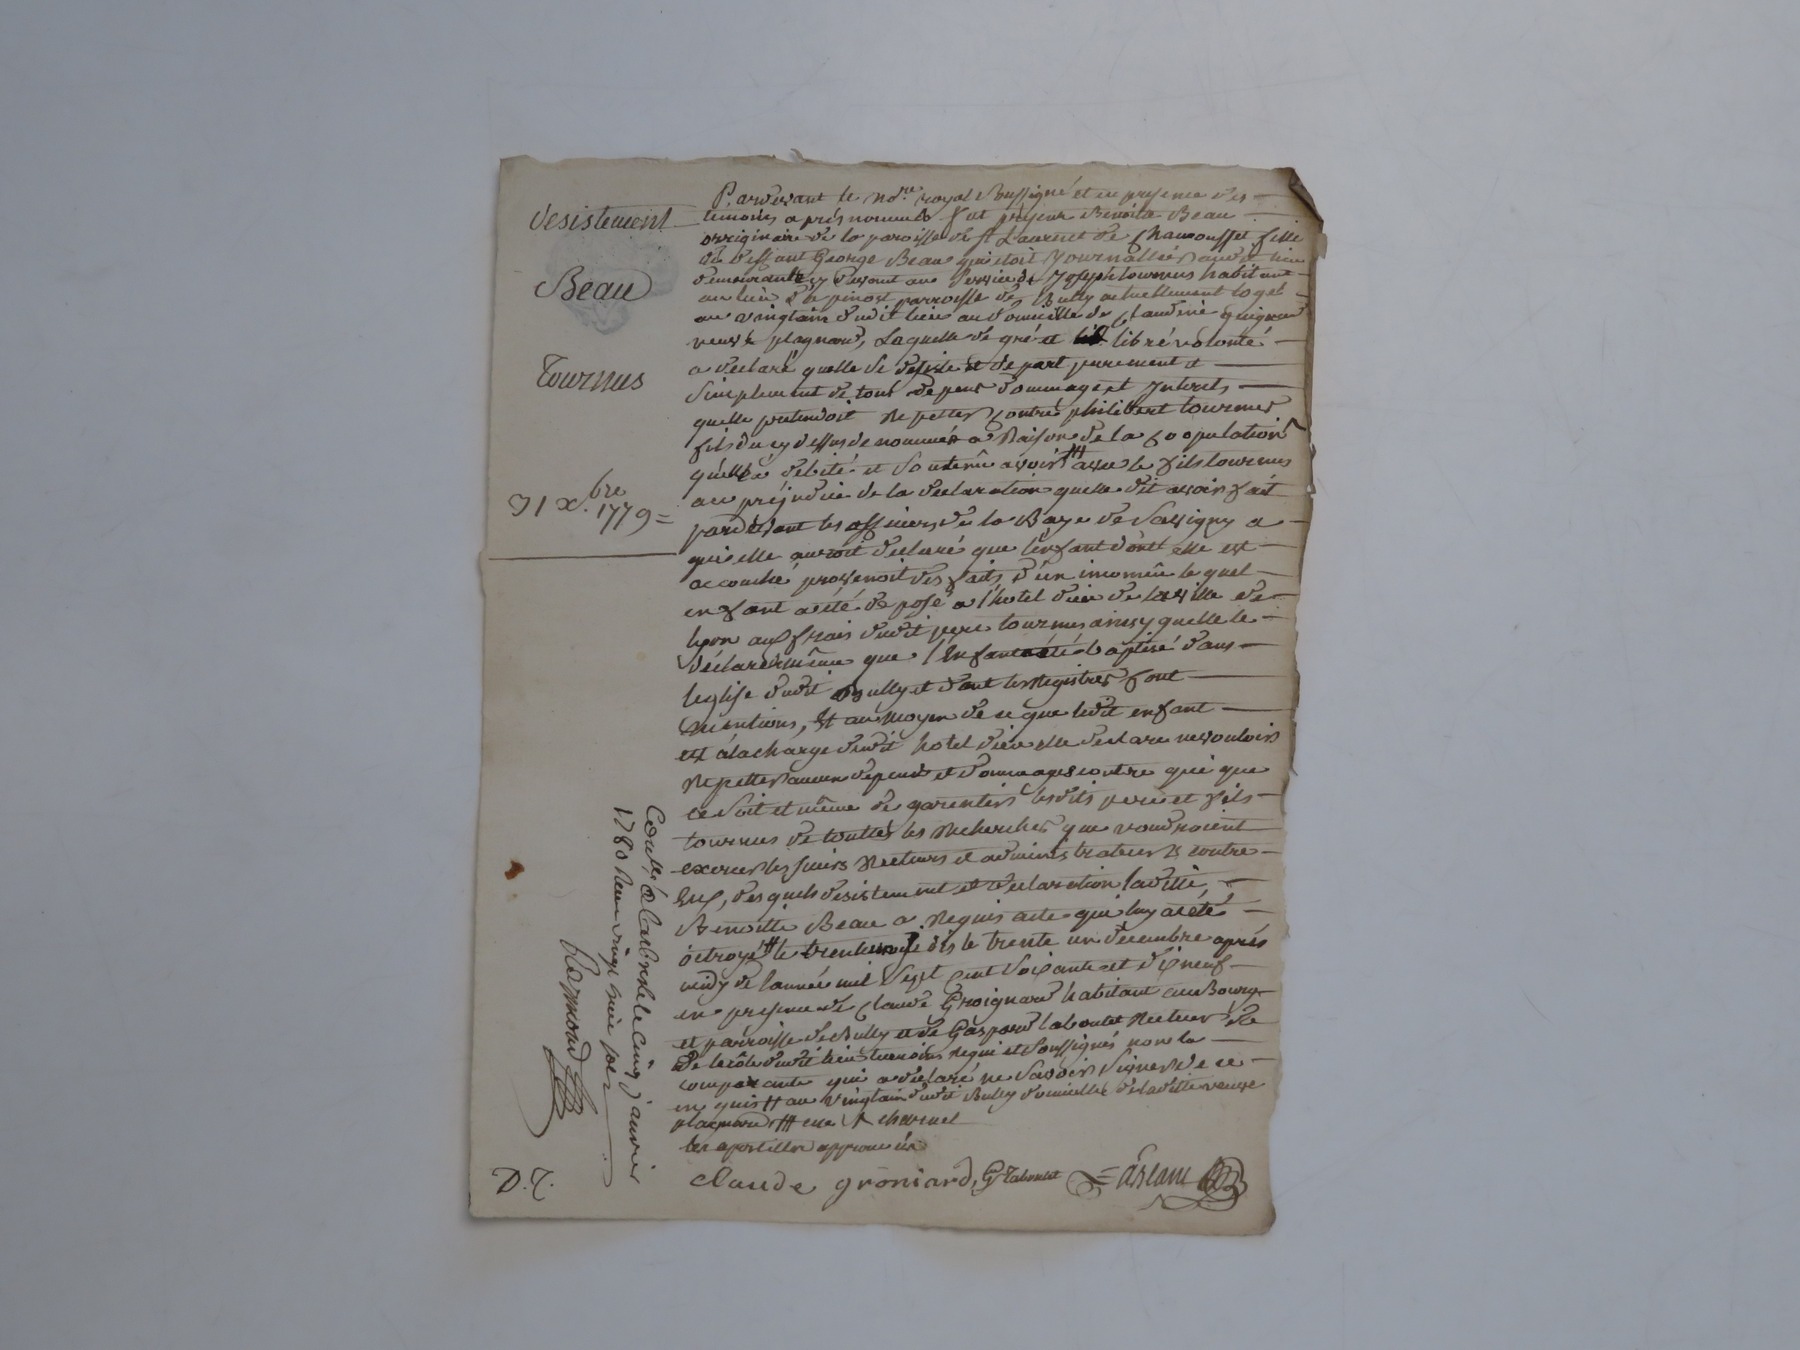 désistement
Beau
Tournus
31 xbre 1779 =
Pardevant le nore royal soussigné et en presence des
temoins après nommés fut presente Benoite Beau
originaire de la paroisse de st Laurent de Chamousset fille
du deffunt George Beau qui étoit journallier audit lieu
demeurante cy devant au service de Joseph tournus habitant
au lieu de pinost parroisse de Bully actuellement logée
au vingtain dudit lieu au domicille de Claudine
veuve plagnard, Laquelle de gré et libre volonté
a declaré quelle se desiste et depart purement et
simplement de tous depens dommages et Interets
quelle pretendoit repetter contre philibert tournus
fils du cy dessus denommé a Raison de la coopulation
quelle a debité et soutenu avoir # avec le fils tournus
au préjudice de la declaration quelle dit avoir fait
pardevant les officiers de la Baye de Savigny a
qui elle auroit declaré que l'enfant dont elle est
accouché provenoit des faits d'un inconnu lequel
enfant a été deposé a l'hotel dieu de la ville de
lyon aux frais dudit pere tournus ainsy quelle le
déclare même que l'Enfant a été baptisé dans
leglise dudit Bully et dont les Registres font
mentions, Et au moyen de ce que ledit enfant
est à la charge dudit hotel dieu elle declare ne vouloir
Repetter aucun depends et dommages contre qui que
ce soit et même de garentir lesdits pere et fils
tournus de touttes les Recherches que voudroient
exercer les sieurs Recteurs et administrateurs contre
Eux, desquels desistement et declaration laditte
Benoitte Beau a Requis acte qui luy a été
octroyé # le dis le trente un decembre après
midy de l'année mil sept cent soixante et dix neuf
en presence de Claude Groignard habitant au Bourg
et parroisse de Bully et de Gaspard laboulet Recteur de
De l'ecôle dudit lieu temoins requi et soussignés non la
comparante qui a declaré ne savoir signer de ce
enquis # au vingtain dudit Bully domicille de laditte veuve
plagnard # eue charnel
les apostilles approuvées
claude groniard, G Laboulet
Contlé à Larbresle le cinq janvier
1780 Reçu vingt huit sols
Raymond
D. T.